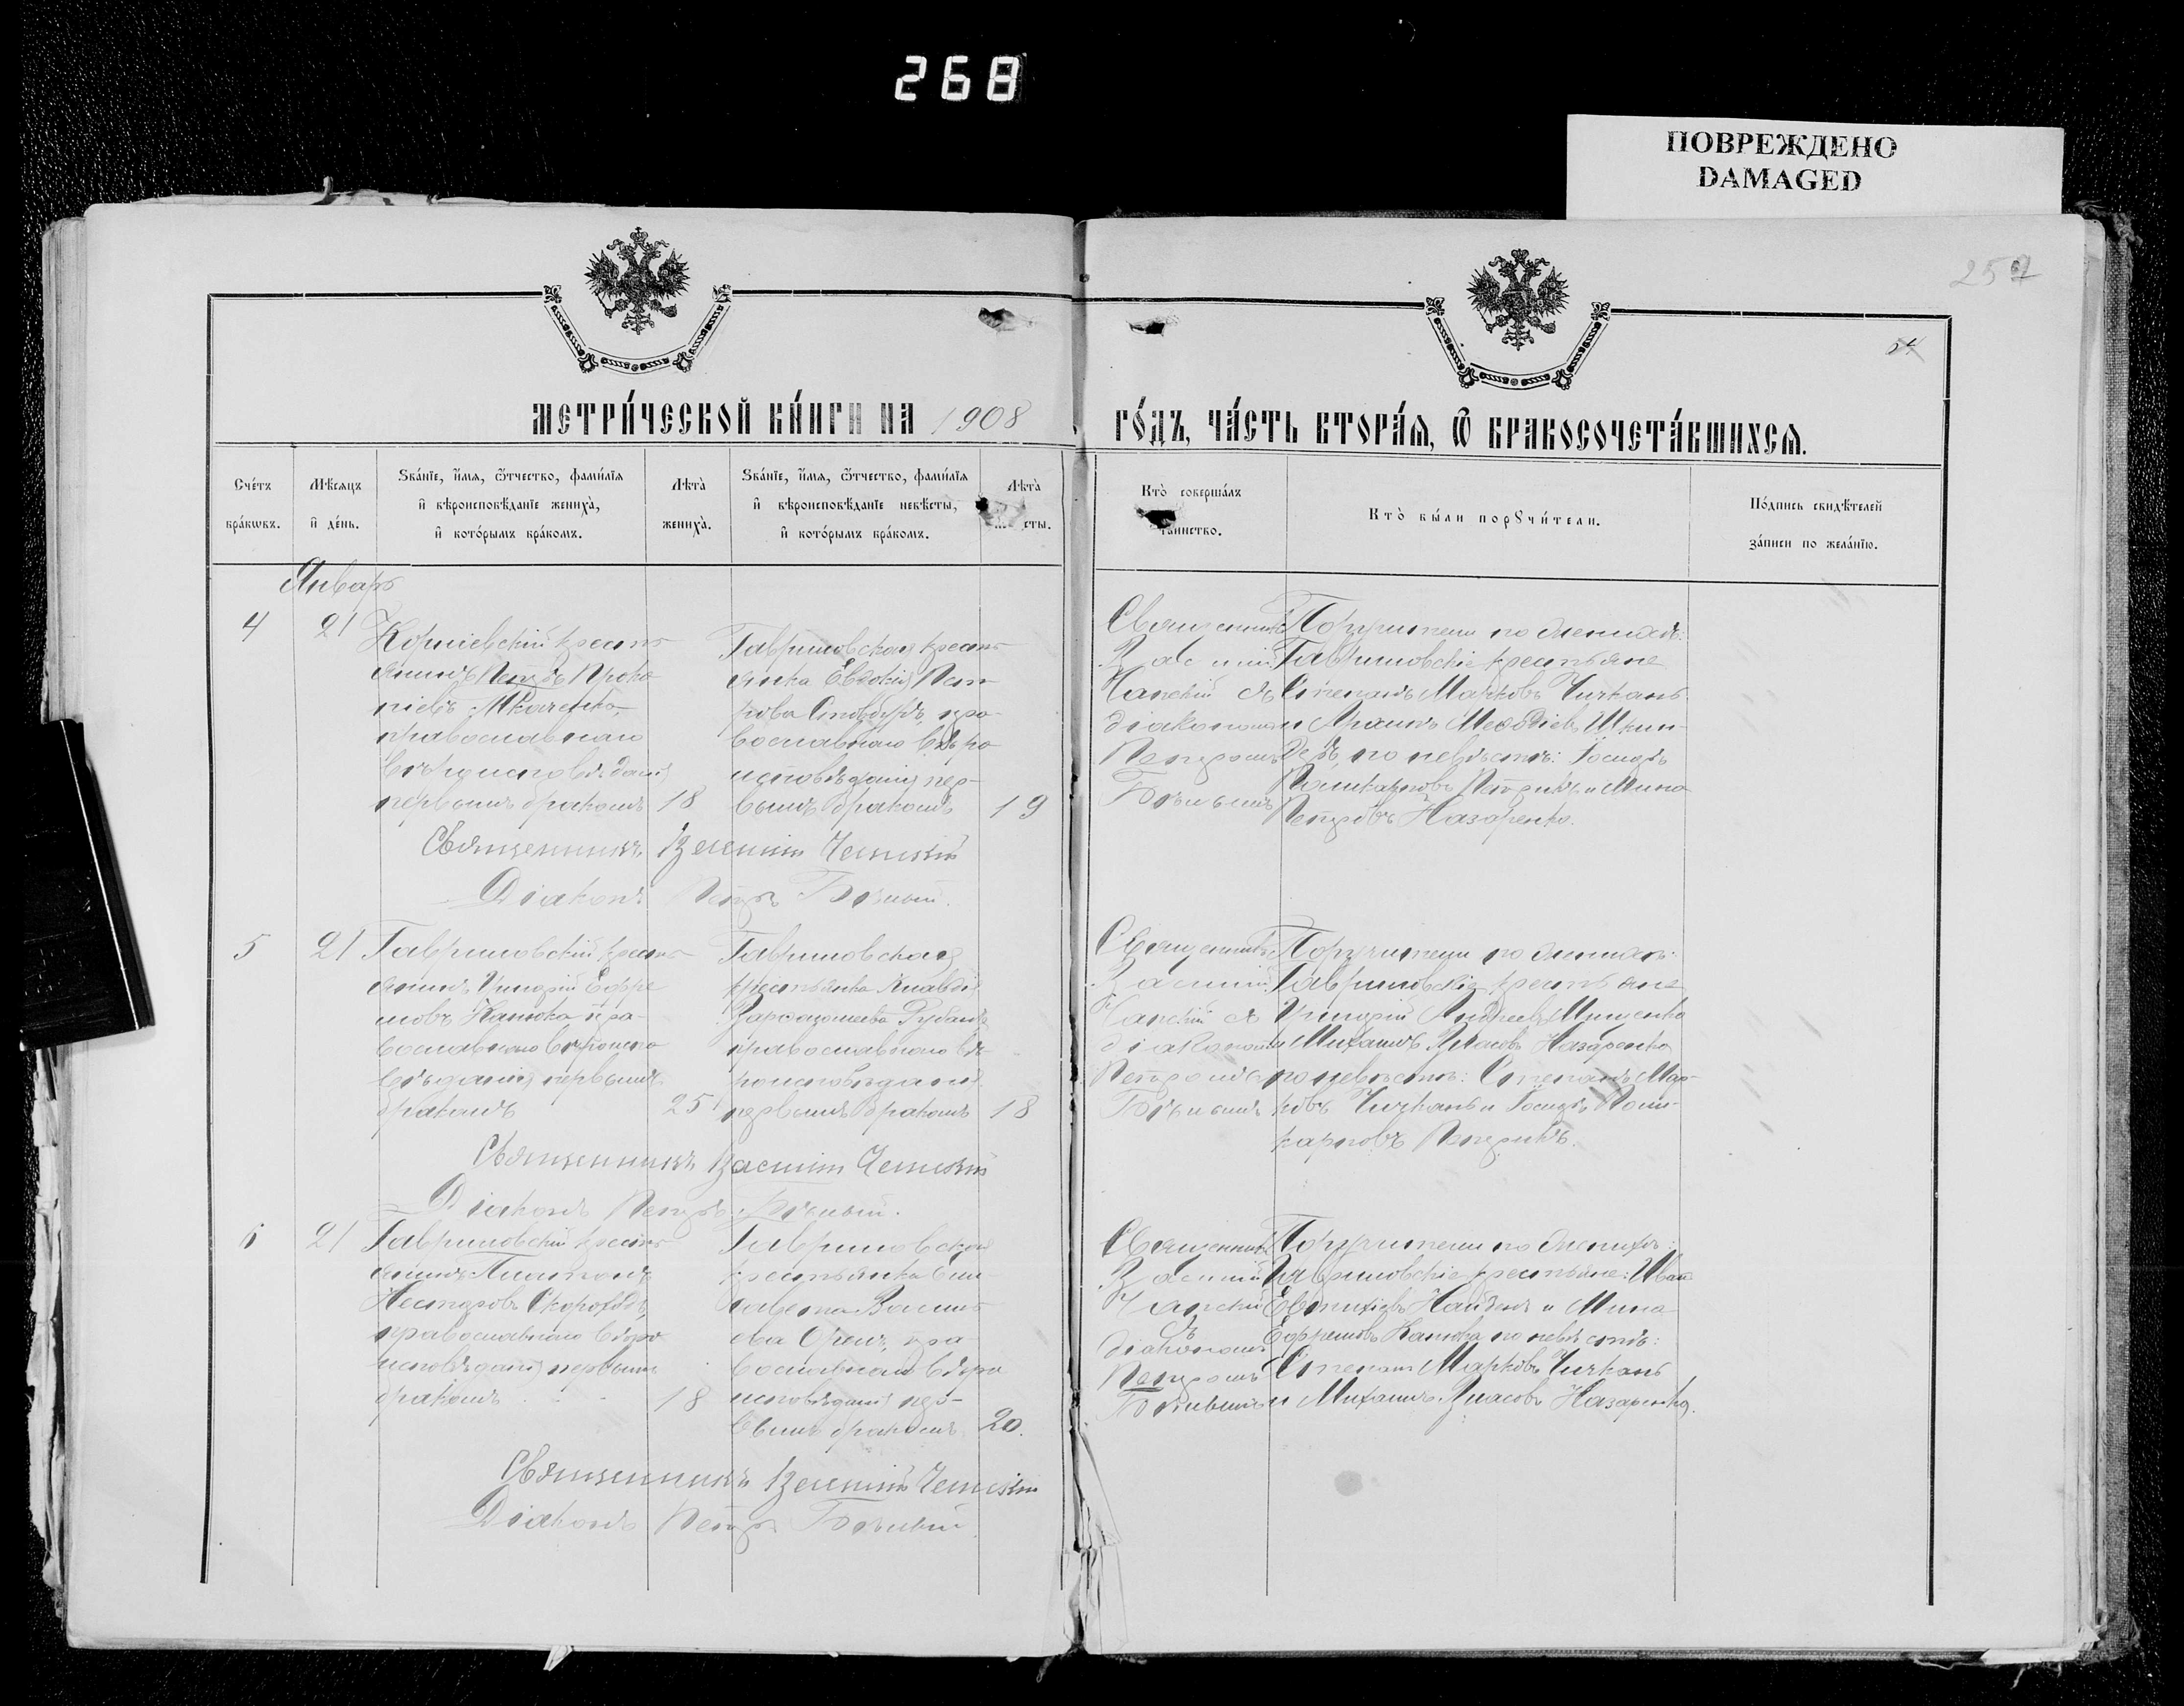 268
ПОВРЕЖДЕНО
DAMAGED
257
МЕТРИ́ЧЕСКОЙ КНИ́ГИ НА 1908
ГО́ДЪ, ЧА́СТЬ ВТОРА́Ѧ, Ѡ БРАКОСОЧЕТА́ВШИХСѦ.
Сче́тъ
бра́кѡвъ.
Мѣсяцъ
и де́нь.
Зва́нїе, и́мѧ, ѻ́тчество, фами́лїя
и вѣроисповѣ́данїе жениха̀,
и кото́рымъ бра́комъ.
Лѣта̀
жениха̀.
Зва́нїе, и́мѧ, ѻ́тчество, фами́лїя
и вѣроисповѣ́данїе невѣ́сты,
и кото́рымъ бра́комъ.
Лѣта̀
сты.
Кто̀ соверша́лъ
таинство.
Кто̀ бы́ли порꙋчи́тели.
По́дпись свидѣ́телей
за́писи по жела́нїю.
Январь
4
21
Корніевскій кресть-
янинъ Петръ Проко
піевъ Ткаченко,
православнаго
вѣроисповѣданія
первымъ бракомъ
18
Гавриловская кресть-
янка Евдокія Пет-
рова пра-
вославнаго вѣро
исповѣданія пер-
вымъ бракомъ
19
Священникъ
Василій
Чапскій съ
діакономъ
Петромъ
Бѣлымъ
Поручители по женихѣ:
Гавриловскіе крестьяне
Степанъ Марковъ Чичкань
и Меѳодіевъ Шкин-
деръ, по невѣстѣ: Іосифъ
Поликарповъ Петрикъ и Мина
Петровъ Назаренко.
Священникъ Василій Чапскій
Діаконъ Петръ Бѣлый.
5
21
Гавриловскій кресть-
янинъ Григорій Ефре
мовъ Канюка пра-
вославнаго вѣроиспо
вѣданія первымъ
бракомъ
25
Гавриловская
крестьянка Клавдія
Рубанъ
православнаго вѣ-
роисповѣданія
первымъ бракомъ
18
Священникъ
Василій
Чапскій съ
діакономъ
Петромъ
Бѣлымъ
Поручители по женихѣ:
Гавриловскіе крестьяне
Григорій Андреевъ Мищенко
и Михаилъ Власовъ Назаренко
по невѣстѣ: Степанъ Мар-
ковъ Чичкань и Іосифъ Поли-
карповъ Петрикъ.
Священникъ Василій Чапскій
Діаконъ Петръ Бѣлый.
6
21
Гавриловскій кресть-
янинъ Платонъ
Несторовъ Скороходъ,
православнаго вѣро
исповѣданія первымъ
бракомъ
18
Гавриловская
крестьянка Ели-
завета Василь-
ева пра-
вославнаго вѣро
исповѣданія пер-
вымъ бракомъ
20.
Священникъ
Василій
Чапскій
съ
діакономъ
Петромъ
Бѣлымъ
Поручители по женихѣ:
Гавриловскіе крестьяне: Иван
Евтихіевъ Найденъ и Мина
Ефремовъ Канюка по невѣстѣ:
Степанъ Марковъ Чичкань
и Михаилъ Власовъ Назаренко.
Священникъ Василій Чапскій
Діаконъ Петръ Бѣлый.